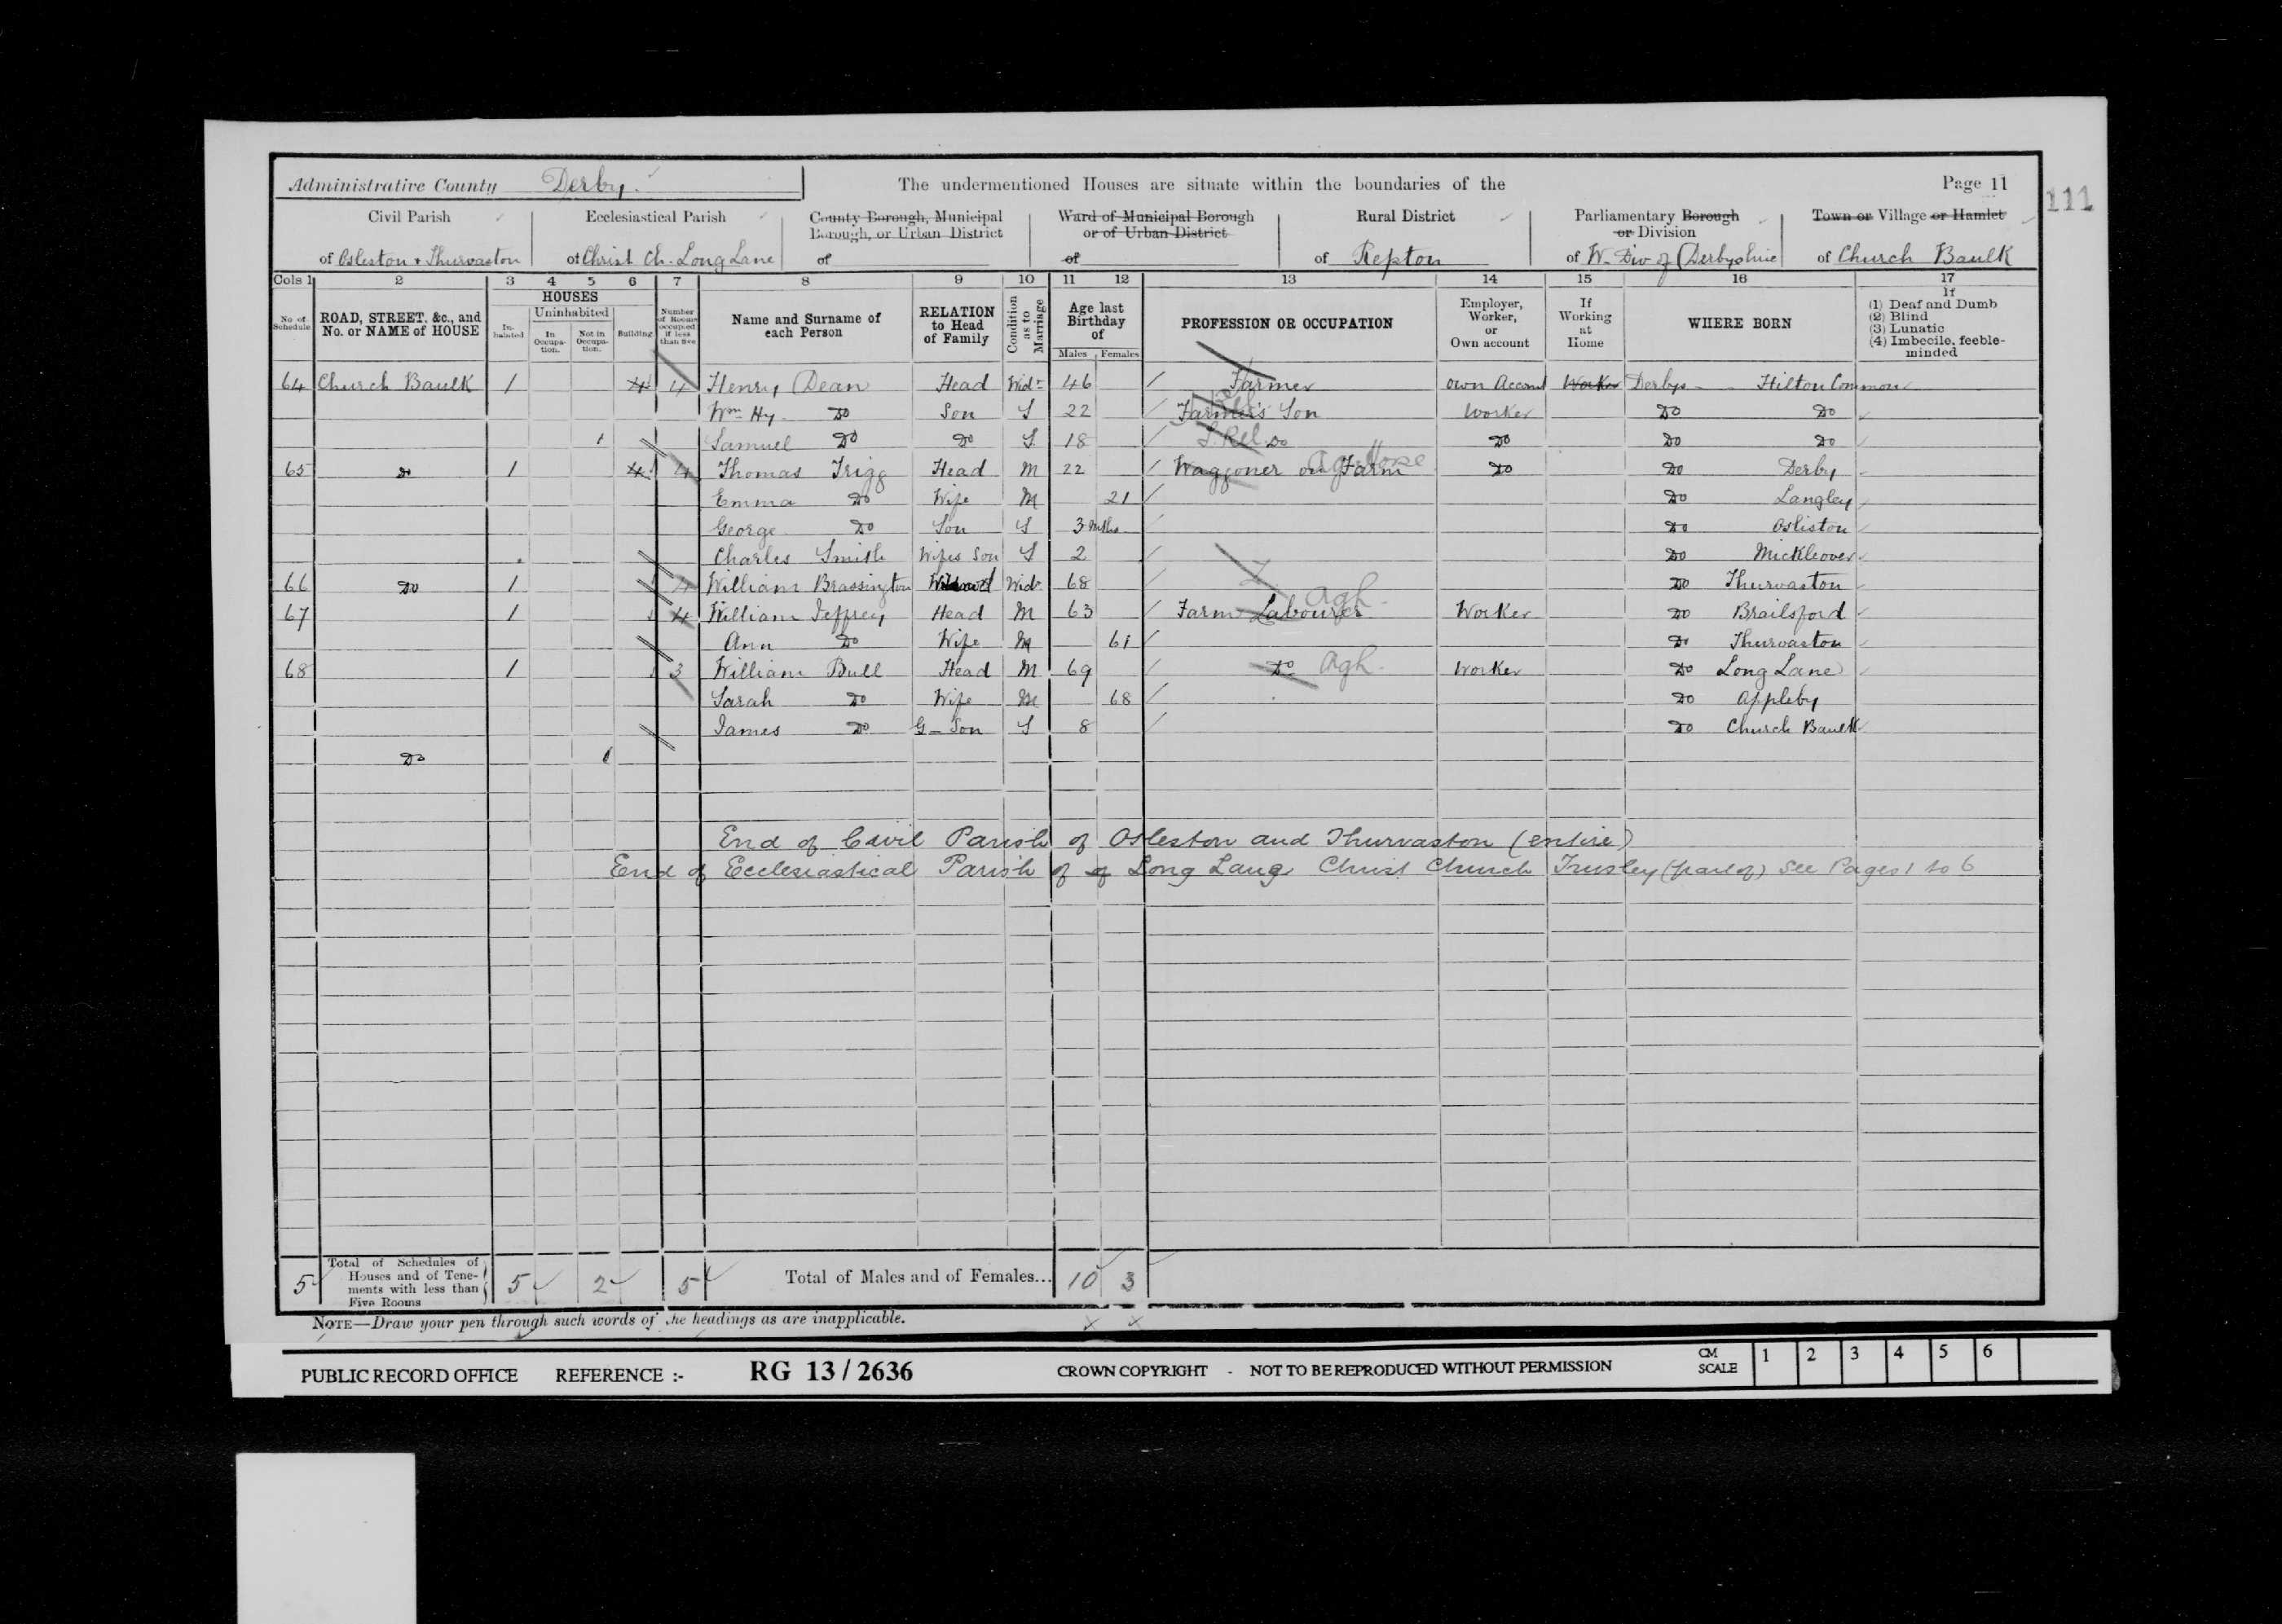 Administrative County Derby. The undermentioned Houses are situate within the boundaries of the Page 11
111
Civil Parish Ecclesiastical Parish County Borough, Municipal Borough, or Urban District Ward of Municipal Borough or of Urban District Rural District Parliamentary Borough or Division Town or Village or Hamlet
of Osleston & Thurvaston of Christ Ch. Long Lane of of of Repton of W. Div of Derbyshire of Church Baulk
Cols 1 2 3 4 5 6 7 8 9 10 11 12 13 14 15 16 17
No. of Schedule ROAD, STREET, &c., and No. or NAME of HOUSE HOUSES Inhabited Uninhabited In Occupation. Not in Occupation. Building Number of Rooms occupied if less than five Name and Surname of each Person RELATION to Head of Family Condition as to Marriage Age last Birthday of Males Females PROFESSION OR OCCUPATION Employer, Worker, or Own account If Working at Home WHERE BORN If (1) Deaf and Dumb (2) Blind (3) Lunatic (4) Imbecile, feeble-minded
64 Church Baulk 1 4 4 Henry Dean Head Widr 46 Farmer own Account Worker Derbys Hilton Common
Wm Hy. Do Son S 22 Farmer's Son Worker Do Do
1 Samuel Do Do S 18 Do Do Do Do
65 Do 1 4 4 Thomas Trigg Head M 22 Waggoner on Farm Do Do Derby
Emma Do Wife M 21 Do Langley
George Do Son S 3 mths Do Osliston
Charles Smith Wifes Son S 2 Do Mickleover
66 Do 1 4 William Brassington Widr 68 Do Thurvaston
67 1 4 William Jeffrey Head M 63 Farm Labourer Agh. Worker Do Brailsford
Ann Do Wife M 61 Do Thurvaston
68 1 3 William Bull Head M 69 Do Agh. Worker Do Long Lane
Sarah Do Wife M 68 Do Appleby
James Do G-Son S 8 Do Church Baulk
Do 1
End of Civil Parish of Osleston and Thurvaston (entire)
End of Ecclesiastical Parish of of Long Lane Christ Church Trusley (part of) See Pages 1 to 6
5 Total of Schedules of Houses and of Tenements with less than Five Rooms 5 2 5 Total of Males and of Females... 10 3
NOTE—Draw your pen through such words of the headings as are inapplicable.
PUBLIC RECORD OFFICE REFERENCE :- RG 13 / 2636 CROWN COPYRIGHT - NOT TO BE REPRODUCED WITHOUT PERMISSION CM SCALE 1 2 3 4 5 6